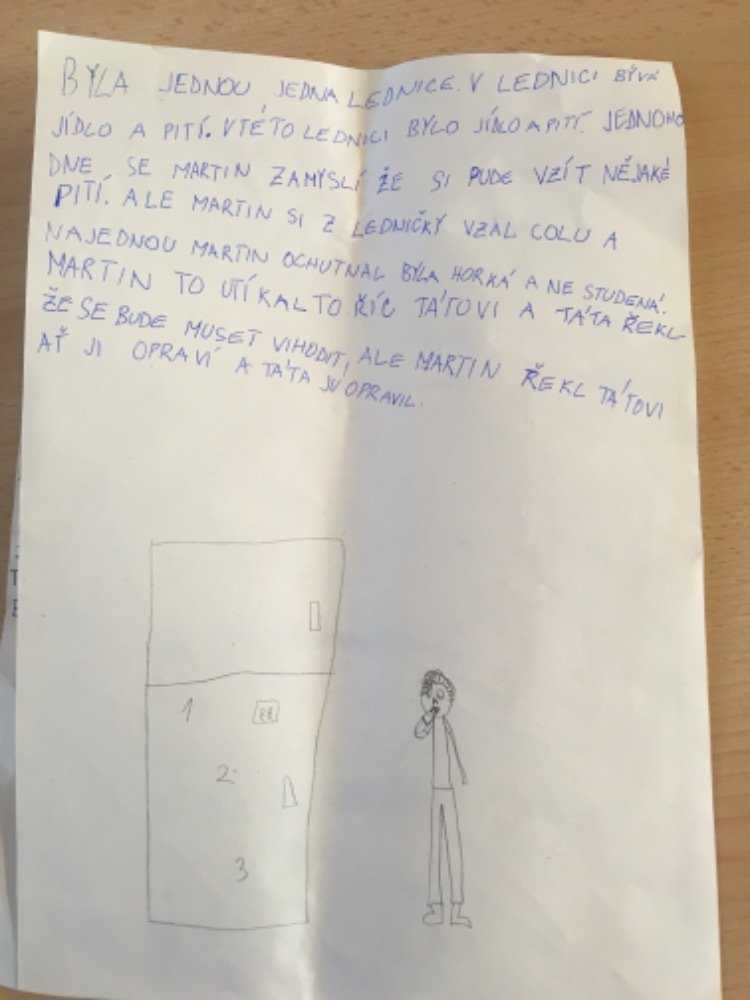 BYLA JEDNOU JEDNA LEDNICE. V LEDNICI BÝVÁ
JÍDLO A PITÍ. V TÉTO LEDNICI BYLO JÍDLO A PITÍ. JEDNOHO
DNE SE MARTIN ZAMYSLÍ ŽE SI PUDE VZÍT NĚJAKÉ
PITÍ. ALE MARTIN SI Z LEDNIČKY VZAL COLU A
NAJEDNOU MARTIN OCHUTNAL BYLA HORKÁ A NE STUDENÁ.
MARTIN TO UTÍKAL TO ŘÍC TÁTOVI A TÁTA ŘEKL
ŽE SE BUDE MUSET VIHODIT, ALE MARTIN ŘEKL TÁTOVI
AŤ JI OPRAVÍ A TÁTA JI OPRAVIL.
1
2
3